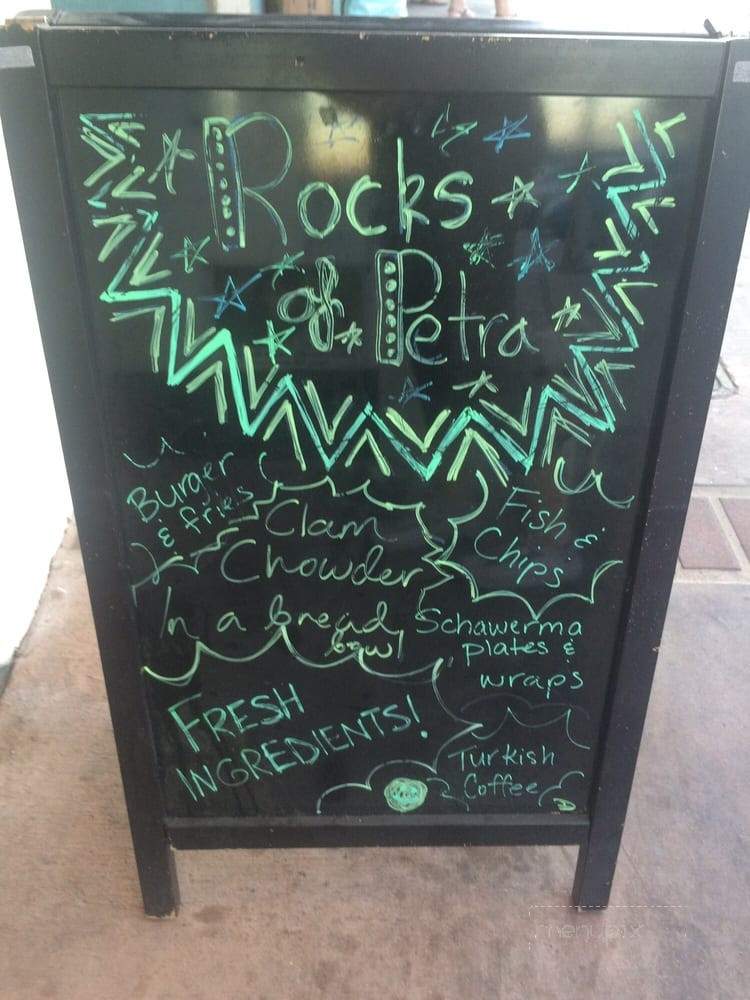 Rocks
of Petra
Burger
& fries
Clam
Chowder
In a bread
bowl
Fish &
Chips
Schawerma
plates &
wraps
FRESH
INGREDIENTS!
Turkish
Coffee
menupix